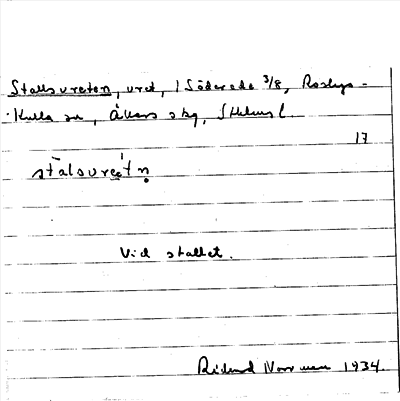 Stallsvreten, vret, 1 Söderede 3/8, Roslags-
Kulla sn, Åkers skg, Sthlms l.
17
stalsvretn
Vid stallet.
Rickard Norrman 1934.